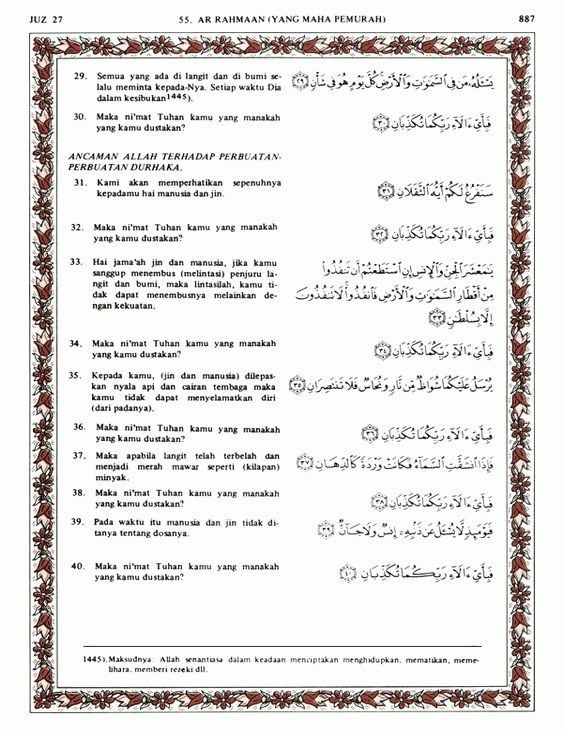 JUZ 27 55. AR RAHMAAN (YANG MAHA PEMURAH) 887
29. Semua yang ada di langit dan di bumi se-
lalu meminta kepada-Nya. Setiap waktu Dia
dalam kesibukan1445).
يَسْـَٔلُهُۥ مَن فِى ٱلسَّمَـٰوَٰتِ وَٱلْأَرْضِ كُلَّ يَوْمٍ هُوَ فِى شَأْنٍ ﴿٢٩﴾
30. Maka ni'mat Tuhan kamu yang manakah
yang kamu dustakan?
فَبِأَىِّ ءَالَآءِ رَبِّكُمَا تُكَذِّبَانِ ﴿٣٠﴾
ANCAMAN ALLAH TERHADAP PERBUATAN-
PERBUATAN DURHAKA.
31. Kami akan memperhatikan sepenuhnya
kepadamu hai manusia dan jin.
سَنَفْرُغُ لَكُمْ أَيُّهَ ٱلثَّقَلَانِ ﴿٣١﴾
32. Maka ni'mat Tuhan kamu yang manakah
yang kamu dustakan?
فَبِأَىِّ ءَالَآءِ رَبِّكُمَا تُكَذِّبَانِ ﴿٣٢﴾
33. Hai jama'ah jin dan manusia, jika kamu
sanggup menembus (melintasi) penjuru la-
ngit dan bumi, maka lintasilah, kamu ti-
dak dapat menembusnya melainkan de-
ngan kekuatan.
يَـٰمَعْشَرَ ٱلْجِنِّ وَٱلْإِنسِ إِنِ ٱسْتَطَعْتُمْ أَن تَنفُذُوا۟
مِنْ أَقْطَارِ ٱلسَّمَـٰوَٰتِ وَٱلْأَرْضِ فَٱنفُذُوا۟ لَا تَنفُذُونَ
إِلَّا بِسُلْطَـٰنٍ ﴿٣٣﴾
34. Maka ni'mat Tuhan kamu yang manakah
yang kamu dustakan?
فَبِأَىِّ ءَالَآءِ رَبِّكُمَا تُكَذِّبَانِ ﴿٣٤﴾
35. Kepada kamu, (jin dan manusia) dilepas-
kan nyala api dan cairan tembaga maka
kamu tidak dapat menyelamatkan diri
(dari padanya).
يُرْسَلُ عَلَيْكُمَا شُوَاظٌ مِّن نَّارٍ وَنُحَاسٌ فَلَا تَنتَصِرَانِ ﴿٣٥﴾
36. Maka ni'mat Tuhan kamu yang manakah
yang kamu dustakan?
فَبِأَىِّ ءَالَآءِ رَبِّكُمَا تُكَذِّبَانِ ﴿٣٦﴾
37. Maka apabila langit telah terbelah dan
menjadi merah mawar seperti (kilapan)
minyak.
فَإِذَا ٱنشَقَّتِ ٱلسَّمَآءُ فَكَانَتْ وَرْدَةً كَٱلدِّهَانِ ﴿٣٧﴾
38. Maka ni'mat Tuhan kamu yang manakah
yang kamu dustakan?
فَبِأَىِّ ءَالَآءِ رَبِّكُمَا تُكَذِّبَانِ ﴿٣٨﴾
39. Pada waktu itu manusia dan jin tidak di-
tanya tentang dosanya.
فَيَوْمَئِذٍ لَّا يُسْـَٔلُ عَن ذَنۢبِهِۦٓ إِنسٌ وَلَا جَآنٌّ ﴿٣٩﴾
40. Maka ni'mat Tuhan kamu yang manakah
yang kamu dustakan?
فَبِأَىِّ ءَالَآءِ رَبِّكُمَا تُكَذِّبَانِ ﴿٤٠﴾
1445). Maksudnya: Allah senantiasa dalam keadaan menciptakan menghidupkan, mematikan, meme-
lihara, memberi rezeki dll.